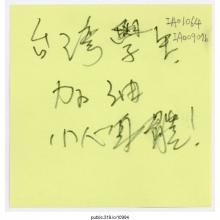 台灣學生
加油
小心身體!
IA01064
IA009076
public.318.io/10994